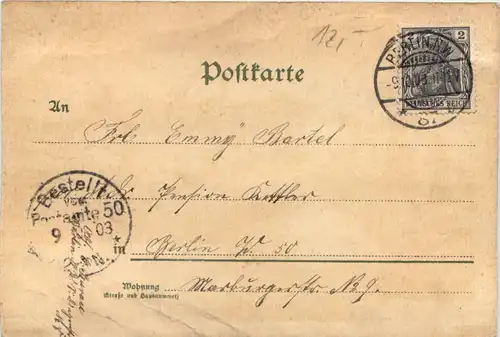 12,-
Postkarte
2
DEUTSCHES REICH
BERLIN N.W.
87
An
Frl. Emmy Bartel
Pension Kettler
Bestellt
vom
Postamte 50
9 03
in Berlin W 50
Wohnung
(Straße und Hausnummer)
Marburgerstr. No 9.